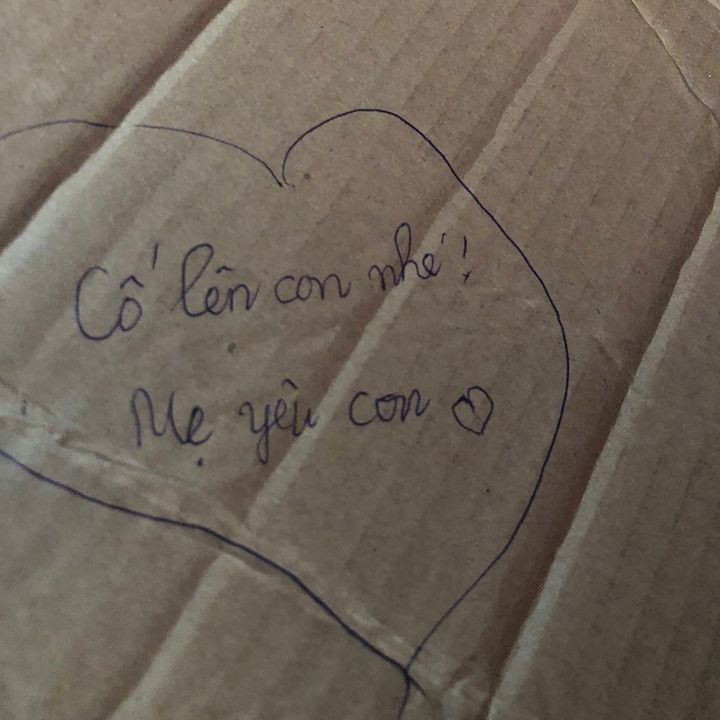 Cố lên con nhé!
Mẹ yêu con ♡